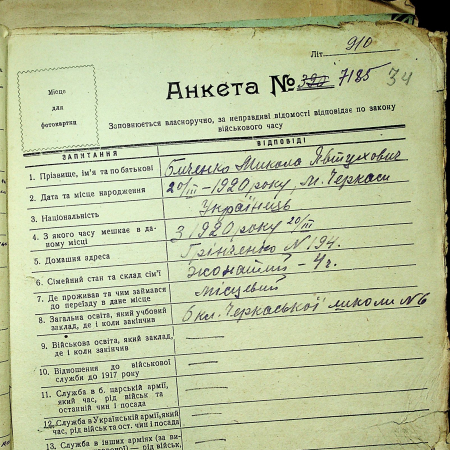 Літ. 910
Місце
для
фотокартки
Анкета № 392 7185 34
Заповнюється власноручно, за неправдиві відомості відповідає по закону
військового часу
ЗАПИТАННЯ
ВІДПОВІДІ
1. Прізвище, ім'я та по батькові
Біченко Микола Явтухович
2. Дата та місце народження
20/III – 1920 року, м. Черкаси
3. Національність
Українець
4. З якого часу мешкає в да-
ному місці
З 1920 року 20/III
5. Домашня адреса
Грінченко N 194.
6. Сімейний стан та склад сім'ї
Жонатий – 4 ч.
7. Де проживав та чим займався
до переїзду в дане місце
Місцевий
8. Загальна освіта, який учбовий
заклад, де і коли закінчив
6 кл. Черкаської школи N6
9. Військова освіта, який заклад,
де і коли закінчив
10. Відношення до військової
служби до 1917 року
11. Служба в б. царській армії,
який час, рід військ та
останній чин і посада
12. Служба в Українській армії, який
час, рід військ та ост. чин і посада
13. Служба в інших арміях (за ви-
) — рід військ,